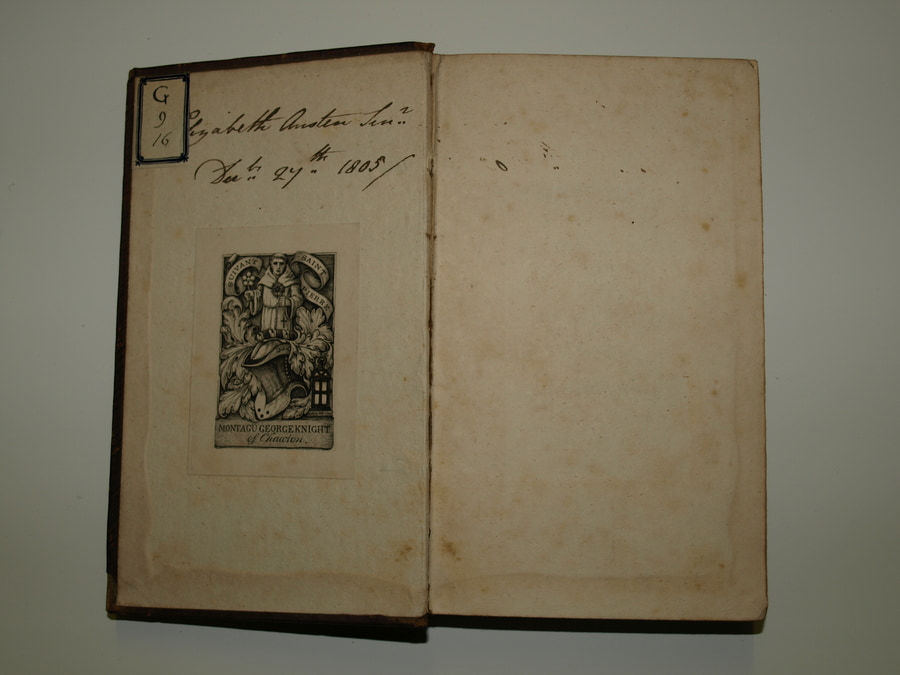 G
9
16
Elizabeth Austen Senr
Decbr 27th 1805/
SUIVANT SAINT PIERRE
MONTAGU GEORGE KNIGHT
of Chawton.